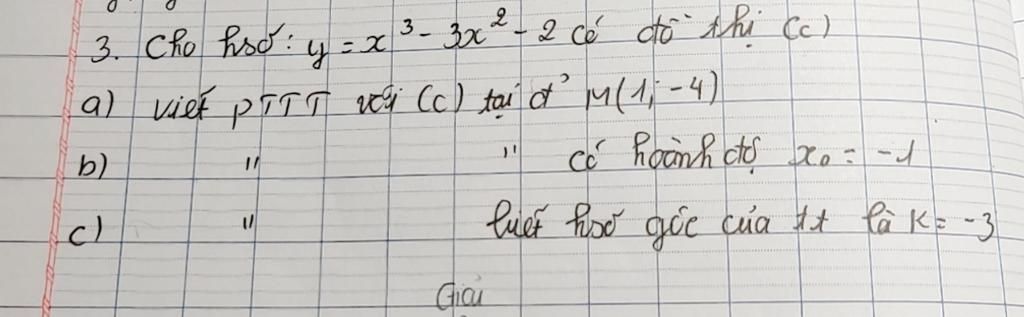 3. Cho hsố: y = x³ - 3x² - 2 có đồ thị (C)
a) viết PTTT với (C) tại đ' M(1; -4)
b) " " có hoành độ x₀ = -1
c) " biết hsố góc của tt là K = -3
Giải